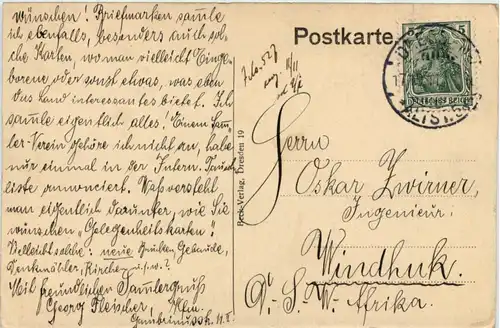 wünschen! Briefmarken samle
ich ebenfalls, besonders auch sol-
che Karten, wo man vielleicht Einge-
borene oder sonst etwas, was eben
das Land interessantes bietet. Ich
samle eigentlich alles! Einem Sam-
ler-Verein gehöre ich nicht an, habe
nur einmal in der Intern. Tausch
liste anonciert. Waß versteht
man eigentlich darunter, wie Sie
wünschen „Gelegenheitskarten"?
Vielleicht solche: neue Brücken Gebäude,
Denkmähler, Kirchen u.s.w.?
Mit freundlichen Samlergruss
Georg Fleischer,
Beck-Verlag, Dresden 19
Postkarte
5
DEUTSCHES REICH
DRESDEN
ALTST.
Herrn
Oskar Zwirner,
Ingenieur.
Windhuk.
D.-S. W.-Afrika.